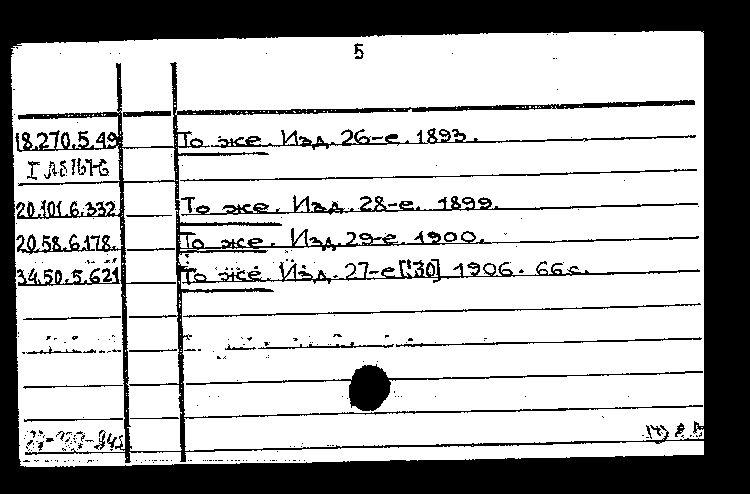 5
18.270.5.49 То же. Изд. 26-е. 1893.
20.101.6.332. То же. Изд. 28-е. 1899.
20.58.6.178. То же. Изд. 29-е. 1900.
34.50.5.621 То же. Изд. 27-е [!30] 1906. 66 с.